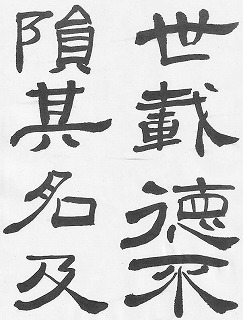 世載德不
隕其名及